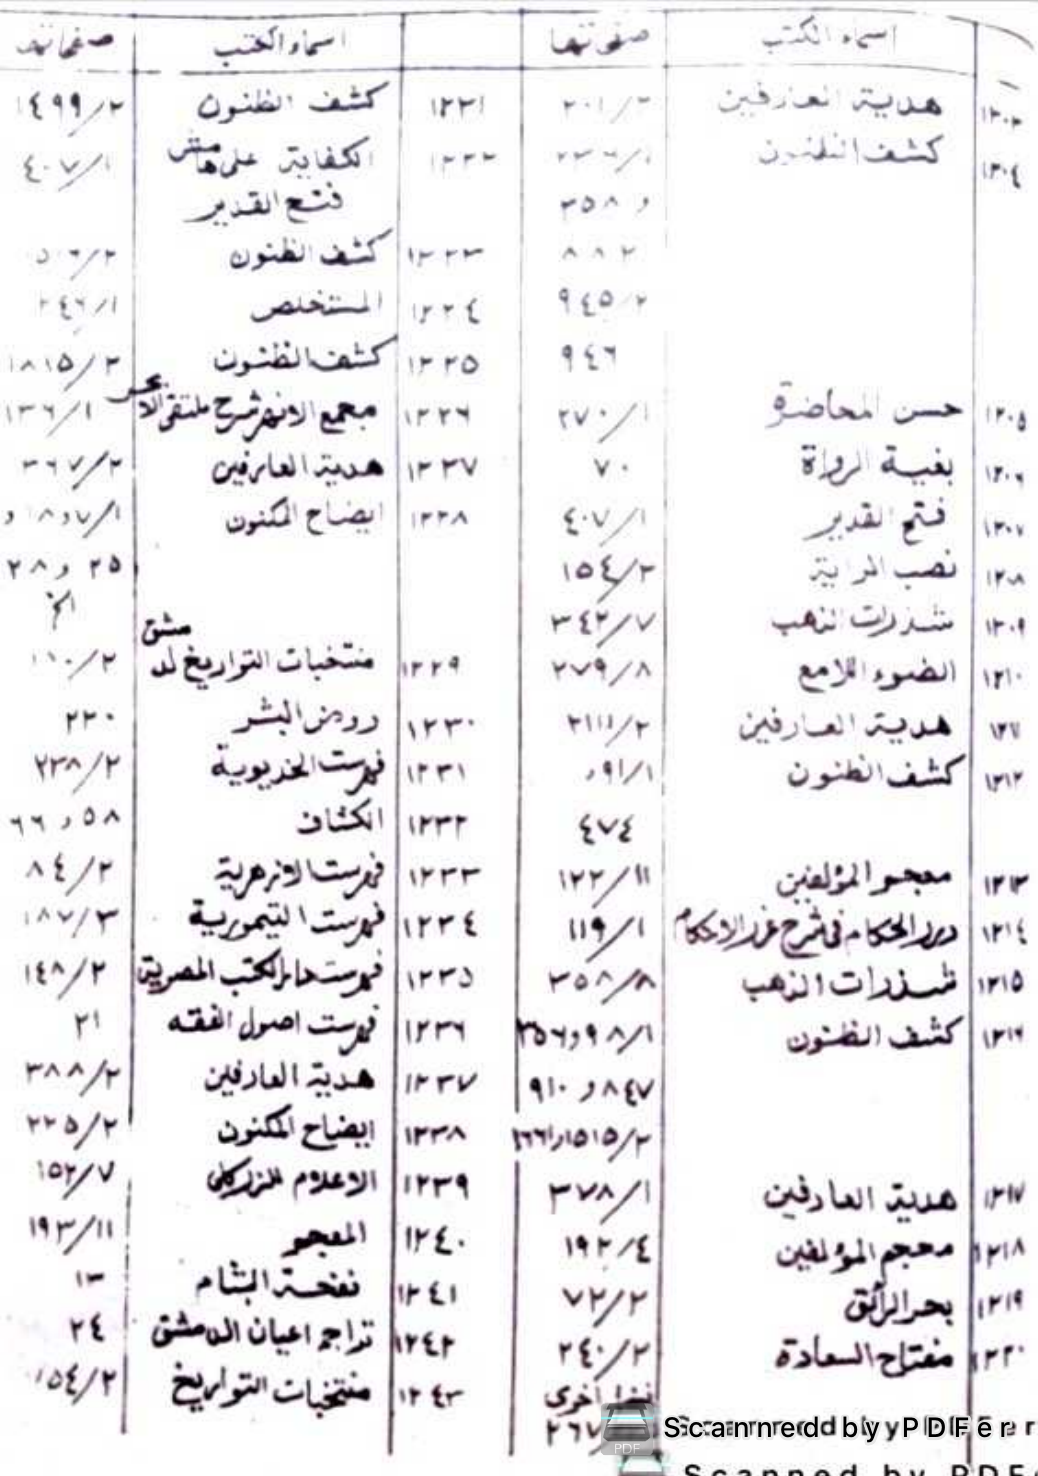 اسماء الكتب صفحاتها
١٢٠٣ هدية العارفين ٢٠١/٢
١٢٠٤ كشف الظنون
و ٣٥٨
٨٨٢
٩٤٥/٢
٩٤٦
١٢٠٥ حسن المحاضرة ٢٧٠/١
١٢٠٦ بغية الرواة ٧٠
١٢٠٧ فتح القدير ٤٠٧/١
١٢٠٨ نصب الراية ١٥٤/٢
١٢٠٩ شذرات الذهب ٣٤٢/٧
١٢١٠ الضوء اللامع ٢٧٩/٨
١٢١١ هدية العارفين
١٢١٢ كشف الظنون ٩١/١و
٤٧٤
١٢١٣ معجم المؤلفين ١٢٢/١١
١٢١٤ درر الحكام في شرح غرر الاحكام ١١٩/١
١٢١٥ شذرات الذهب ٣٥٨/٨
١٢١٦ كشف الظنون ٩٨/١و٣٥٦
٨٤٧ و ٩١٠
١٥١٥/٢و
١٢١٧ هدية العارفين ٣٧٨/١
١٢١٨ معجم المؤلفين ١٩٢/٤
١٢١٩ بحر الرائق ٧٢/٢
١٢٢٠ مفتاح السعادة ٢٤٠/٢
اخرى
٢٦٧
اسماء الكتب صفحاتها
١٢٢١ كشف الظنون ١٤٩٩/٢
١٢٢٢ الكفاية على هامش ٤٠٧/١
فتح القدير
١٢٢٣ كشف الظنون
١٢٢٤ المستخلص ٢٤٦/١
١٢٢٥ كشف الظنون ١٨١٥/٢
١٢٢٦ مجمع الانهر شرح ملتقى الابحر ١٣٦/١
١٢٢٧ هدية العارفين ٣٦٧/٢
١٢٢٨ ايضاح المكنون ٧/١و١٨و
٢٥ و ٢٨
الخ
١٢٢٩ منتخبات التواريخ لدمشق
١٢٣٠ روض البشر ٢٢٠
١٢٣١ فهرست الخديوية ٢٣٨/٢
١٢٣٢ الكشاف ٥٨ و ٦٦
١٢٣٣ فهرست الازهرية ٨٤/٢
١٢٣٤ فهرست التيمورية ١٨٧/٣
١٢٣٥ فهرست دار الكتب المصرية ١٤٨/٢
١٢٣٦ فهرست اصول الفقه ٢١
١٢٣٧ هدية العارفين ٣٨٨/٢
١٢٣٨ ايضاح المكنون ٢٢٥/٢
١٢٣٩ الاعلام للزركلي ١٥٢/٧
١٢٤٠ المعجم ١٩٣/١١
١٢٤١ نفحة البشام ١٣
١٢٤٢ تراجم اعيان الدمشق ٢٤
١٢٤٣ منتخبات التواريخ
PDF